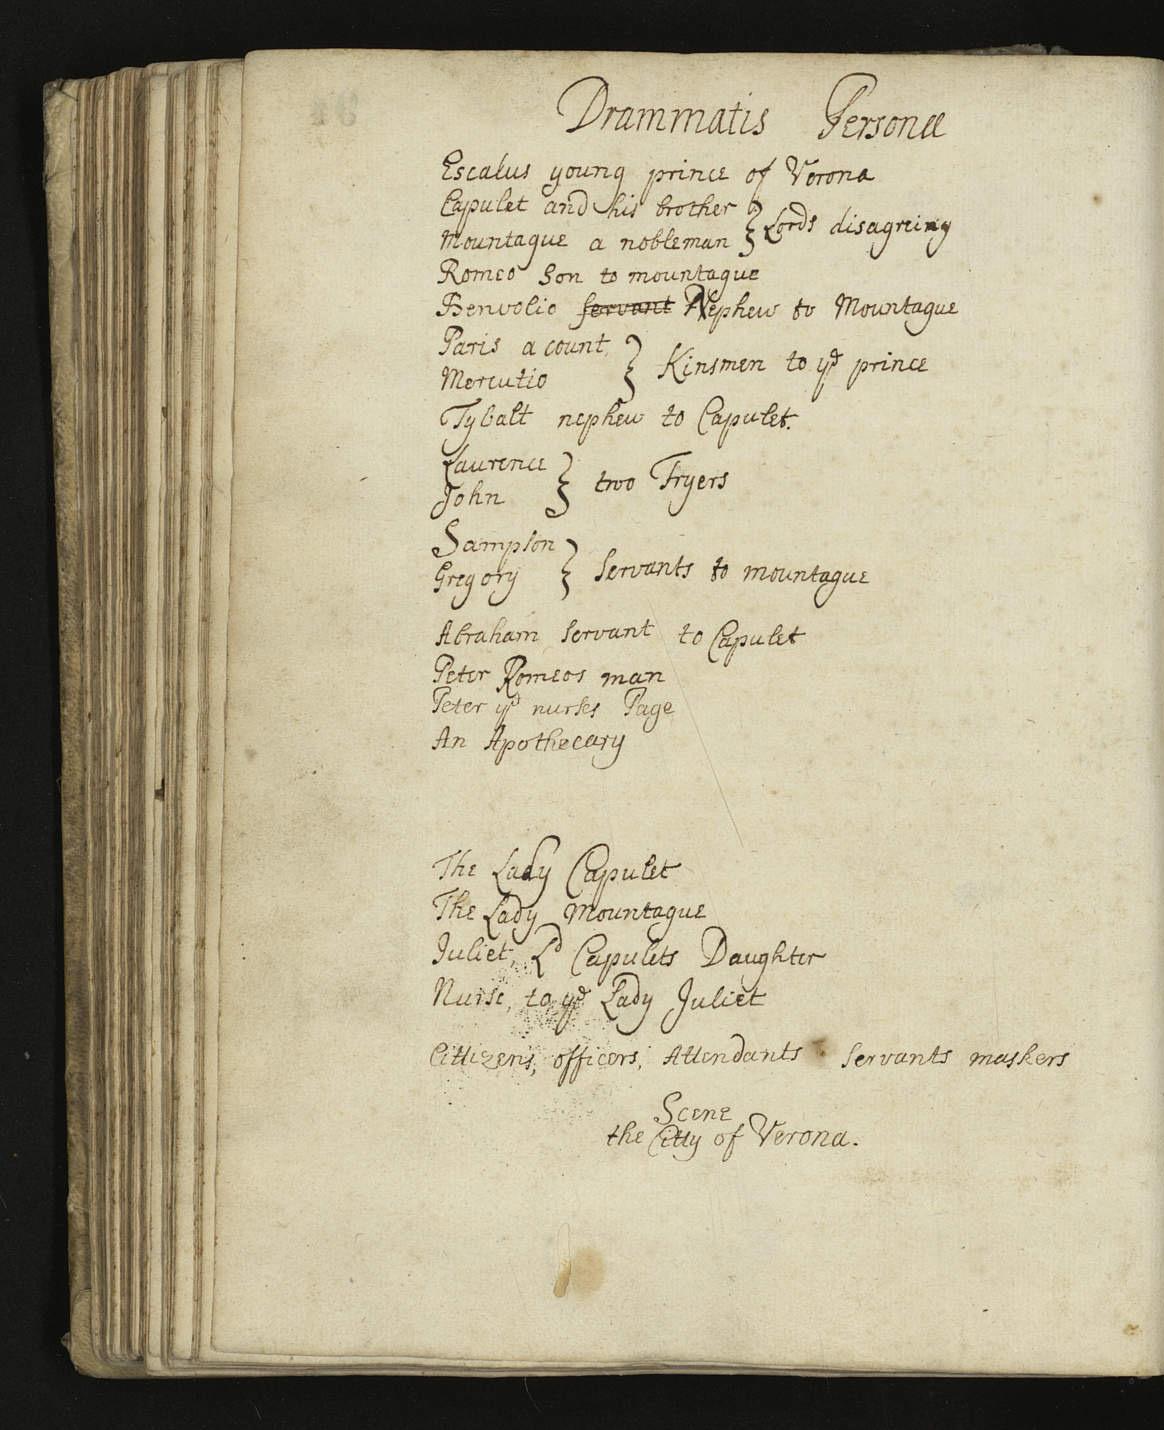 Drammatis Personæ
Escalus young prince of Verona
Capulet and his brother
Mountague a nobleman } Lords disagreing
Romeo Son to mountague
Benvolio servant Nephew to Mountague
Paris a count
Mercutio } Kinsmen to yᵉ prince
Tybalt nephew to Capulet.
Laurence
John } two Fryers
Sampson
Gregory } Servants to mountague
Abraham servant to Capulet
Peter Romeos man
Peter yᵉ nurses Page
An Apothecary
The Lady Capulet
The Lady Mountague
Juliet, Lᵈ Capulets Daughter
Nurse, to yᵉ Lady Juliet
Cittizens, officers, Attendants servants maskers
Scene
the Citty of Verona.